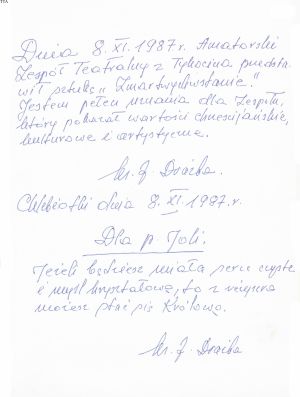 Dnia 8.XI.1987r. Amatorski
Zespół Teatralny z Tykocina przedsta-
wił sztukę „Zmartwychwstanie".
Jestem pełen uznania dla Zespołu,
który pokazał wartości chrześcijańskie,
kulturowe i artystyczne.
ks. J. Dzaika.
Chlebiotki dnia 8.XI.1987.r.
Dla p. Joli.
Jeżeli będziesz miała serce czyste
i myśl kryształową, to z
możesz stać się Królową.
ks. J.